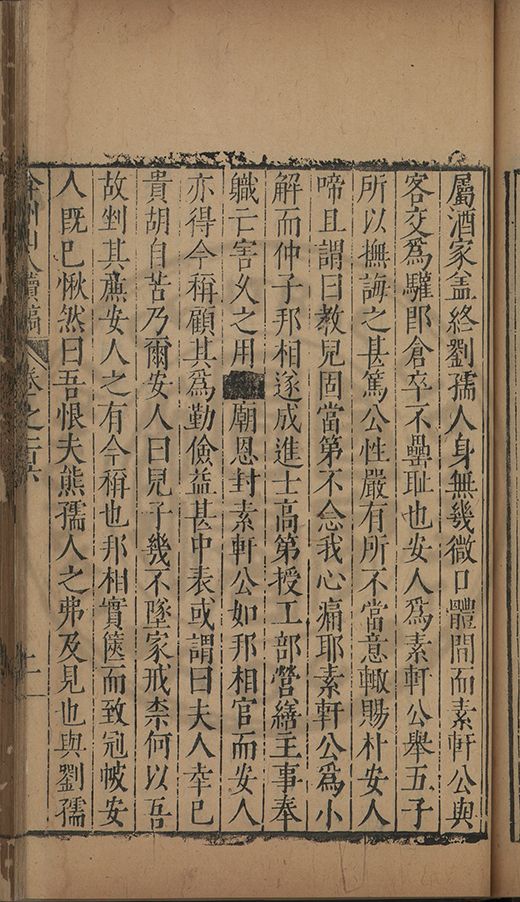 屬酒家盖終劉孺人身無幾微口體間而素軒公與
客交爲驩即倉卒不罍耻也安人爲素軒公舉五子
所以撫誨之甚篤公性嚴有所不當意輙賜朴安人
啼且謂曰教兒固當第不念我心痛耶素軒公爲小
解而仲子邦相遂成進士高第授工部營繕主事奉
職亡害久之用廟恩封素軒公如邦相官而安人
亦得今稱顧其爲勤儉益甚中表或謂曰夫人幸已
貴胡自苦乃爾安人曰兒子幾不墜家戒柰何以吾
故剉其廉安人之有今稱也邦相實篋而致冠帔安
人既已愀然曰吾恨夫熊孺人之弗及見也與劉孺
山人續稿 卷之